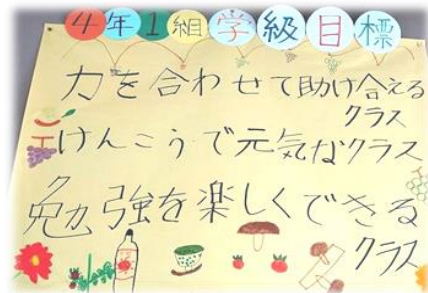 4年1組学級目標
力を合わせて助け合える
クラス
けんこうで元気なクラス
勉強を楽しくできる
クラス